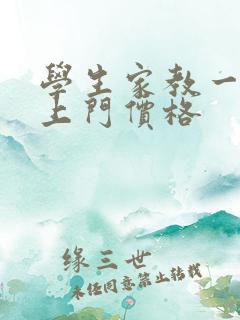 學生家教一
上門價格
緣三世
未任同意禁止轉載